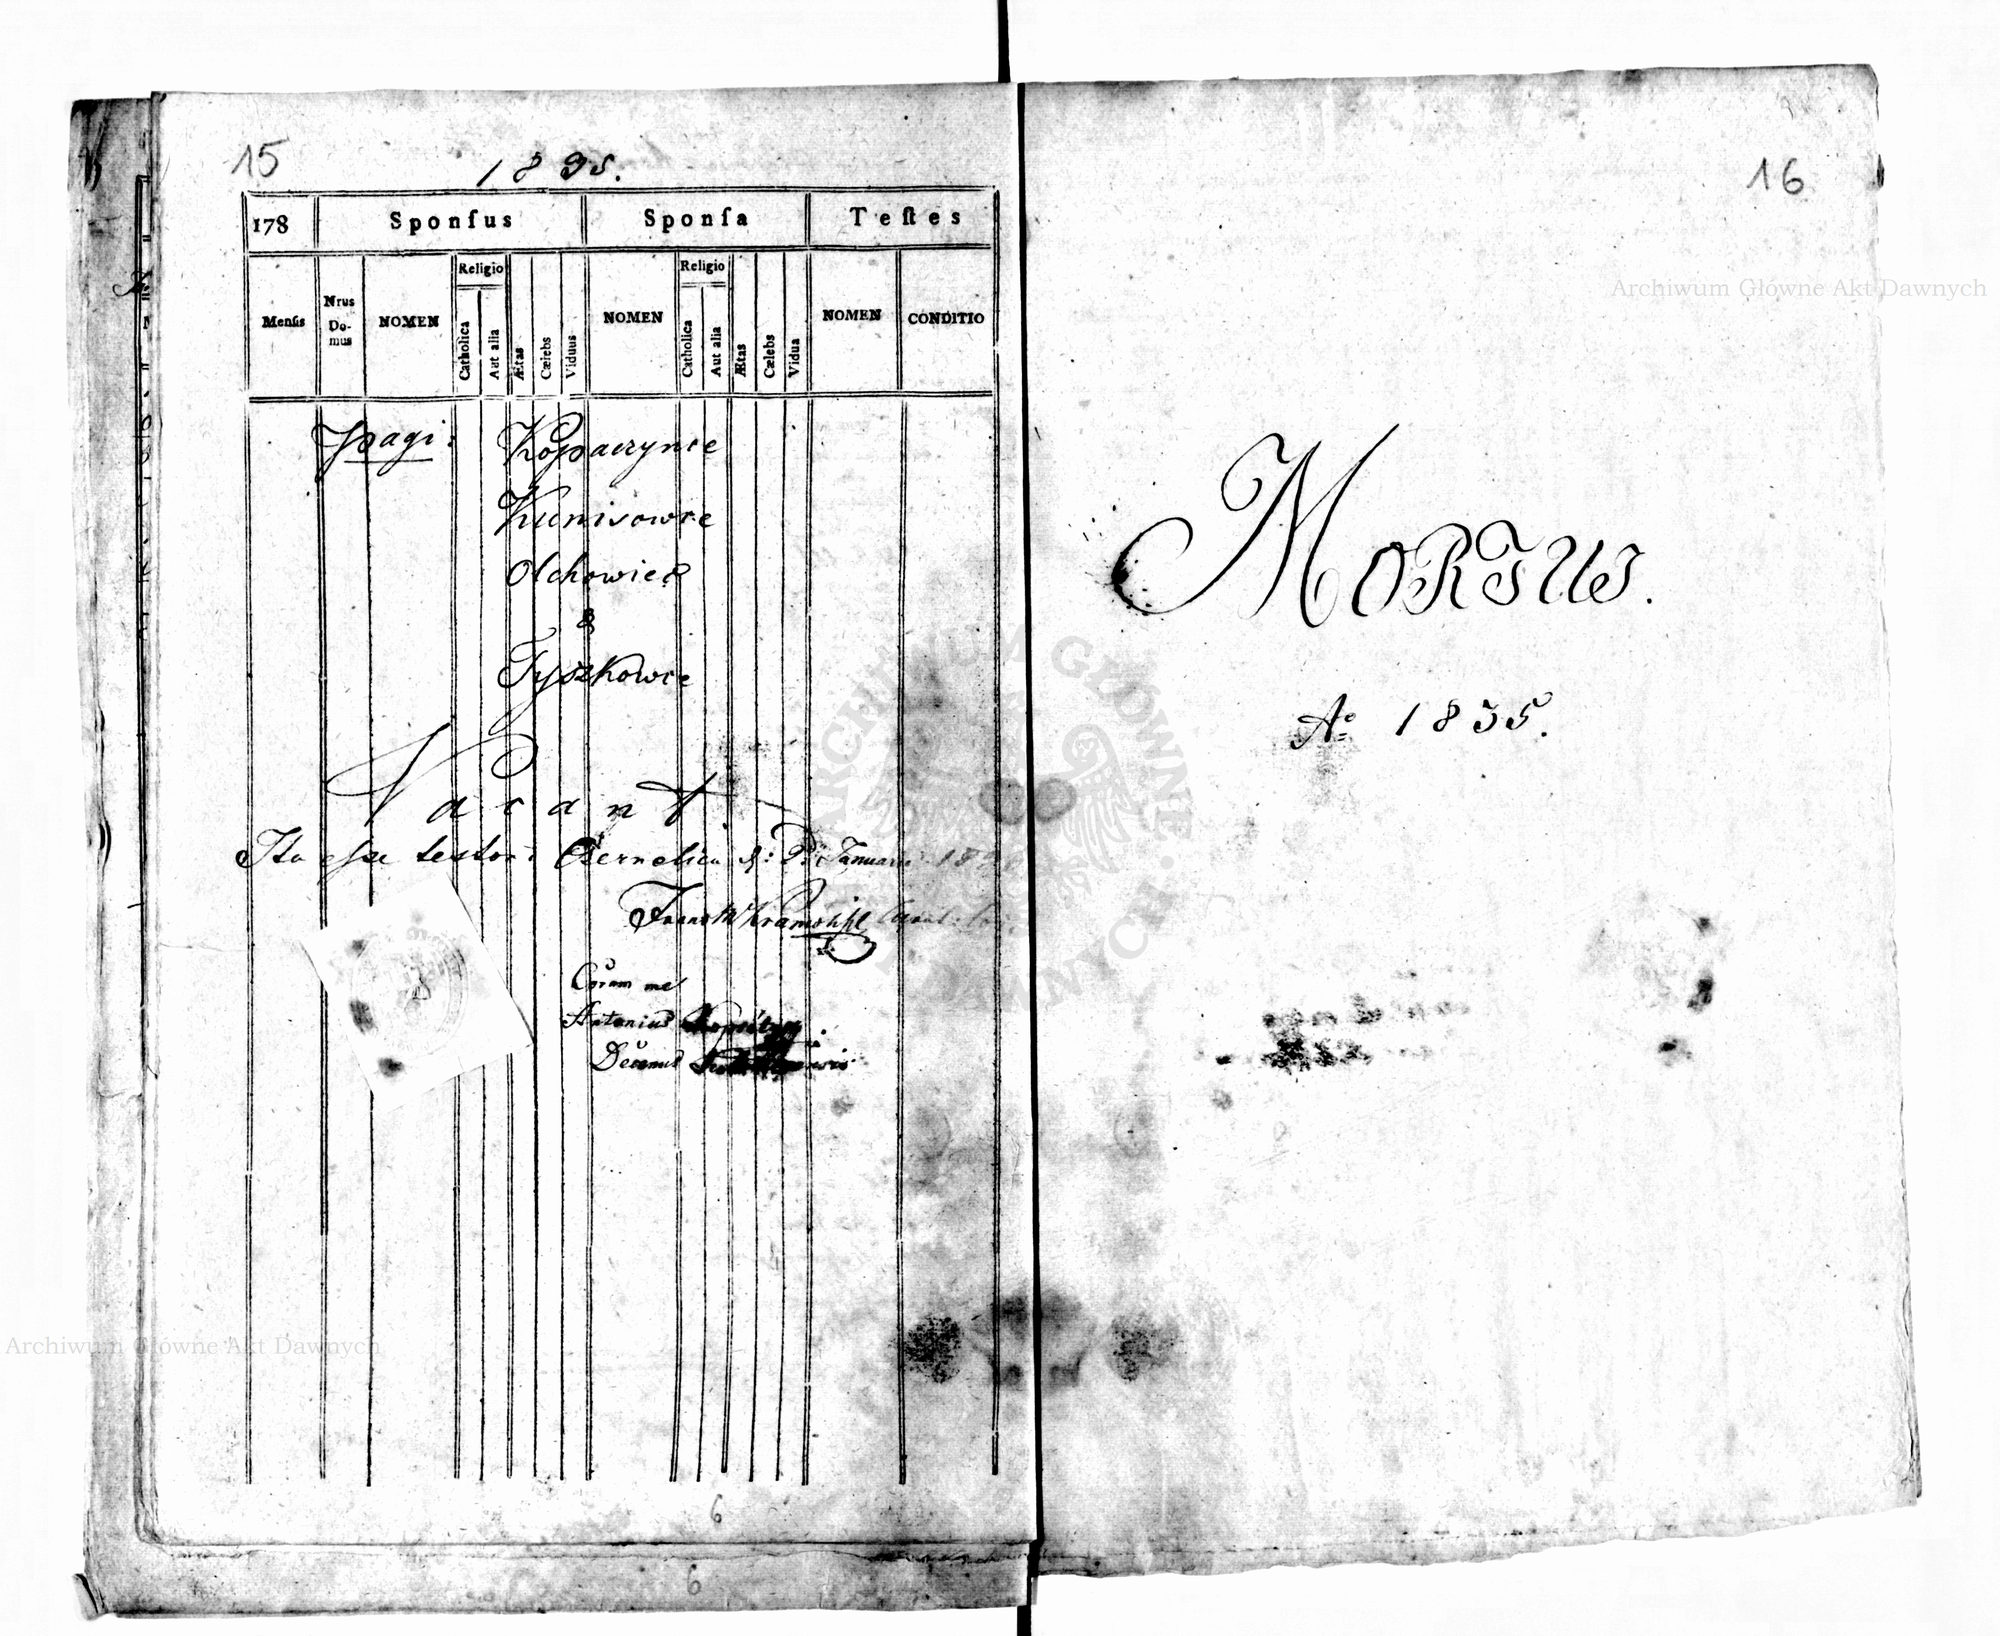 15
1835.
178 Sponſus Sponſa Teſtes
Menſis Nrus Do-mus NOMEN Religio Catholica Aut alia Ætas Cælebs Viduus NOMEN Religio Catholica Aut alia Ætas Cælebs Vidua NOMEN CONDITIO
pagi: Kopaczynce
Kunisowce
Olchowiec
&
Tyszkowce
Vacant
Ita esse testor: Czernelica d: Januarii
Coram me
Antonius
Decanus
6
6
16
MORTUI.
Aº 1835.
Archiwum Główne Akt Dawnych
ARCHIWUM GŁÓWNE AKT DAWNYCH
Archiwum Główne Akt Dawnych